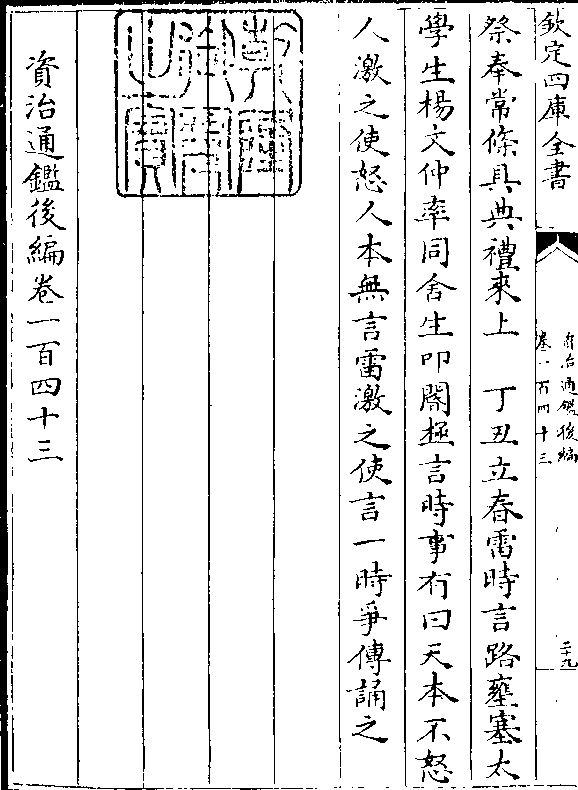 欽定四庫全書
資治通鑑後編
卷一百四十三
二十九
祭奉常條具典禮來上　丁丑立春雷時言路壅塞太
學生楊文仲率同舍生叩閽極言時事有曰天本不怒
人激之使怒人本無言雷激之使言一時爭傳誦之
資治通鑑後編卷一百四十三
乾隆御覽之寶